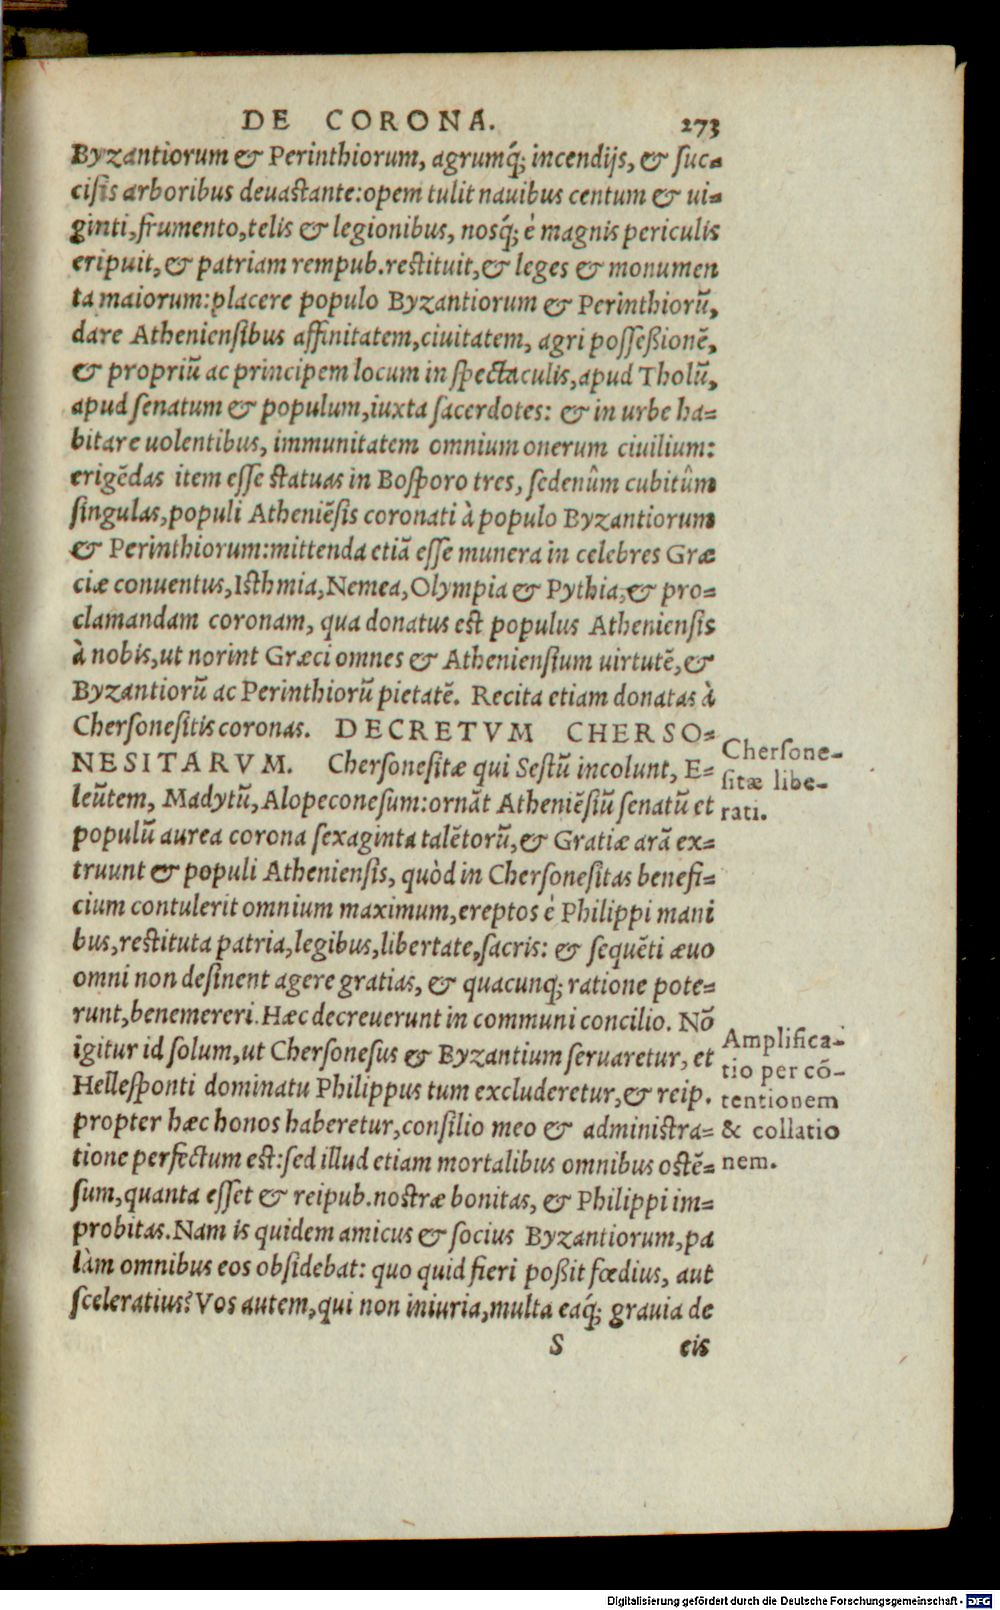 DE CORONA. 273
Byzantiorum & Perinthiorum, agrumq́; incendijs, & suc-
cisis arboribus deuastante: opem tulit nauibus centum & ui-
ginti, frumento, telis & legionibus, nosq́; è magnis periculis
eripuit, & patriam rempub. restituit, & leges & monumen
ta maiorum: placere populo Byzantiorum & Perinthiorũ,
dare Atheniensibus affinitatem, ciuitatem, agri posseßionẽ,
& propriũ ac principem locum in spectaculis, apud Tholũ,
apud senatum & populum, iuxta sacerdotes: & in urbe ha-
bitare uolentibus, immunitatem omnium onerum ciuilium:
erigẽdas item esse statuas in Bosporo tres, sedenûm cubitûm
singulas, populi Atheniẽsis coronati à populo Byzantiorum
& Perinthiorum: mittenda etiã esse munera in celebres Græ
ciæ conuentus, Isthmia, Nemea, Olympia & Pythia, & pro-
clamandam coronam, qua donatus est populus Atheniensis
à nobis, ut norint Græci omnes & Atheniensium uirtutẽ, &
Byzantiorũ ac Perinthiorũ pietatẽ. Recita etiam donatas à
Chersonesitis coronas. DECRETVM CHERSO-
NESITARVM. Chersonesitæ qui Sestũ incolunt, E-
leũtem, Madytũ, Alopeconesum: ornãt Atheniẽsiũ senatũ et
populũ aurea corona sexaginta talẽtorũ, & Gratiæ arã ex-
truunt & populi Atheniensis, quòd in Chersonesitas benefi-
cium contulerit omnium maximum, ereptos è Philippi mani
bus, restituta patria, legibus, libertate, sacris: & sequẽti æuo
omni non desinent agere gratias, & quacunq; ratione pote-
runt, benemereri. Hæc decreuerunt in communi concilio. Nõ
igitur id solum, ut Chersonesus & Byzantium seruaretur, et
Hellesponti dominatu Philippus tum excluderetur, & reip.
propter hæc honos haberetur, consilio meo & administra-
tione perfectum est: sed illud etiam mortalibus omnibus ostẽ-
sum, quanta esset & reipub. nostræ bonitas, & Philippi im-
probitas. Nam is quidem amicus & socius Byzantiorum, pa
làm omnibus eos obsidebat: quo quid fieri poßit fœdius, aut
sceleratius? Vos autem, qui non iniuria, multa eaq́; grauia de
S eis
Chersone-
sitæ libe-
rati.
Amplifica-
tio per cõ-
tentionem
& collatio
nem.
Digitalisierung gefördert durch die Deutsche Forschungsgemeinschaft - DFG